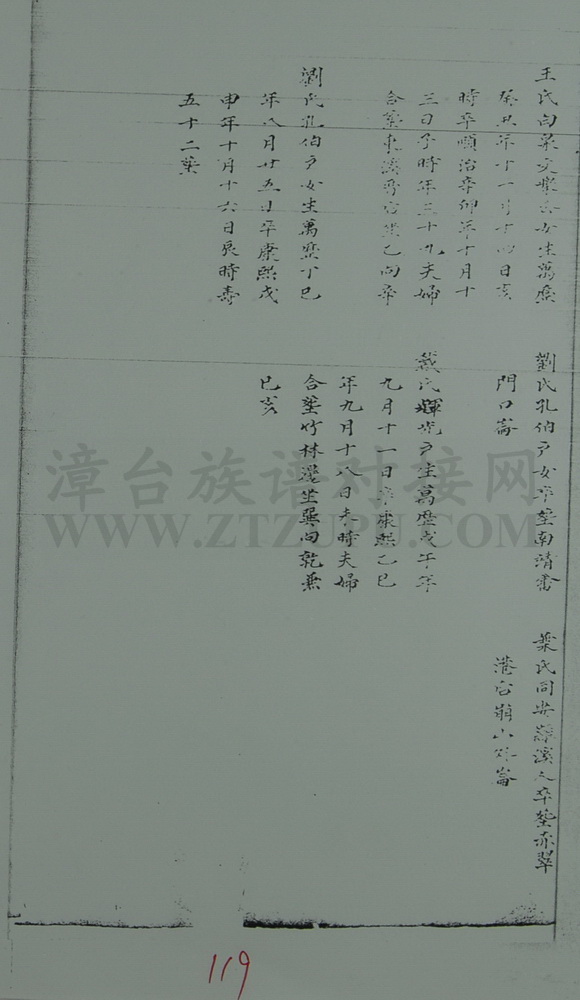 王氏向
癸丑年十一月十四日亥
時卒順治辛卯年十月十
三日子時年三十九夫婦
合塟東溪 坐乙向辛
劉氏孔伯户女生萬曆丁巳
年八月廿五日卒康熙戊
申年十月十六日辰時壽
五十二葬
劉氏孔伯户女卒塟南靖
門口崙
戴氏 户生萬歷戊午年
九月十一日卒康熙乙巳
年九月十八日未時夫婦
合塟竹林 坐巽向乾兼
巳亥
葉氏同安 溪人卒塟赤
港 崩山 崙
漳台族谱对接网
WWW.ZTZUPU.COM
119